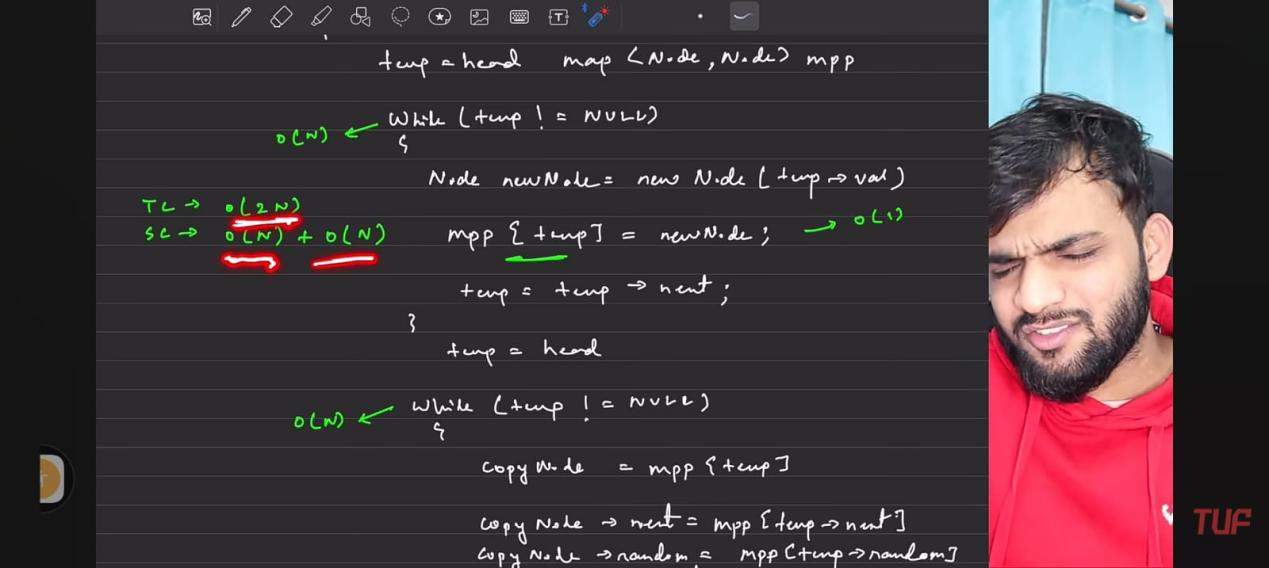 temp = head map <Node, Node> mpp
O(N) ← While (temp != NULL)
{
Node newNode = new Node (temp → val)
TC → O(2N)
SC → O(N) + O(N)
mpp [temp] = newNode; → O(1)
temp = temp → next;
}
temp = head
O(N) ← While (temp != NULL)
{
copyNode = mpp [temp]
copyNode → next = mpp [temp → next]
copyNode → random = mpp [temp → random]
T
TUF